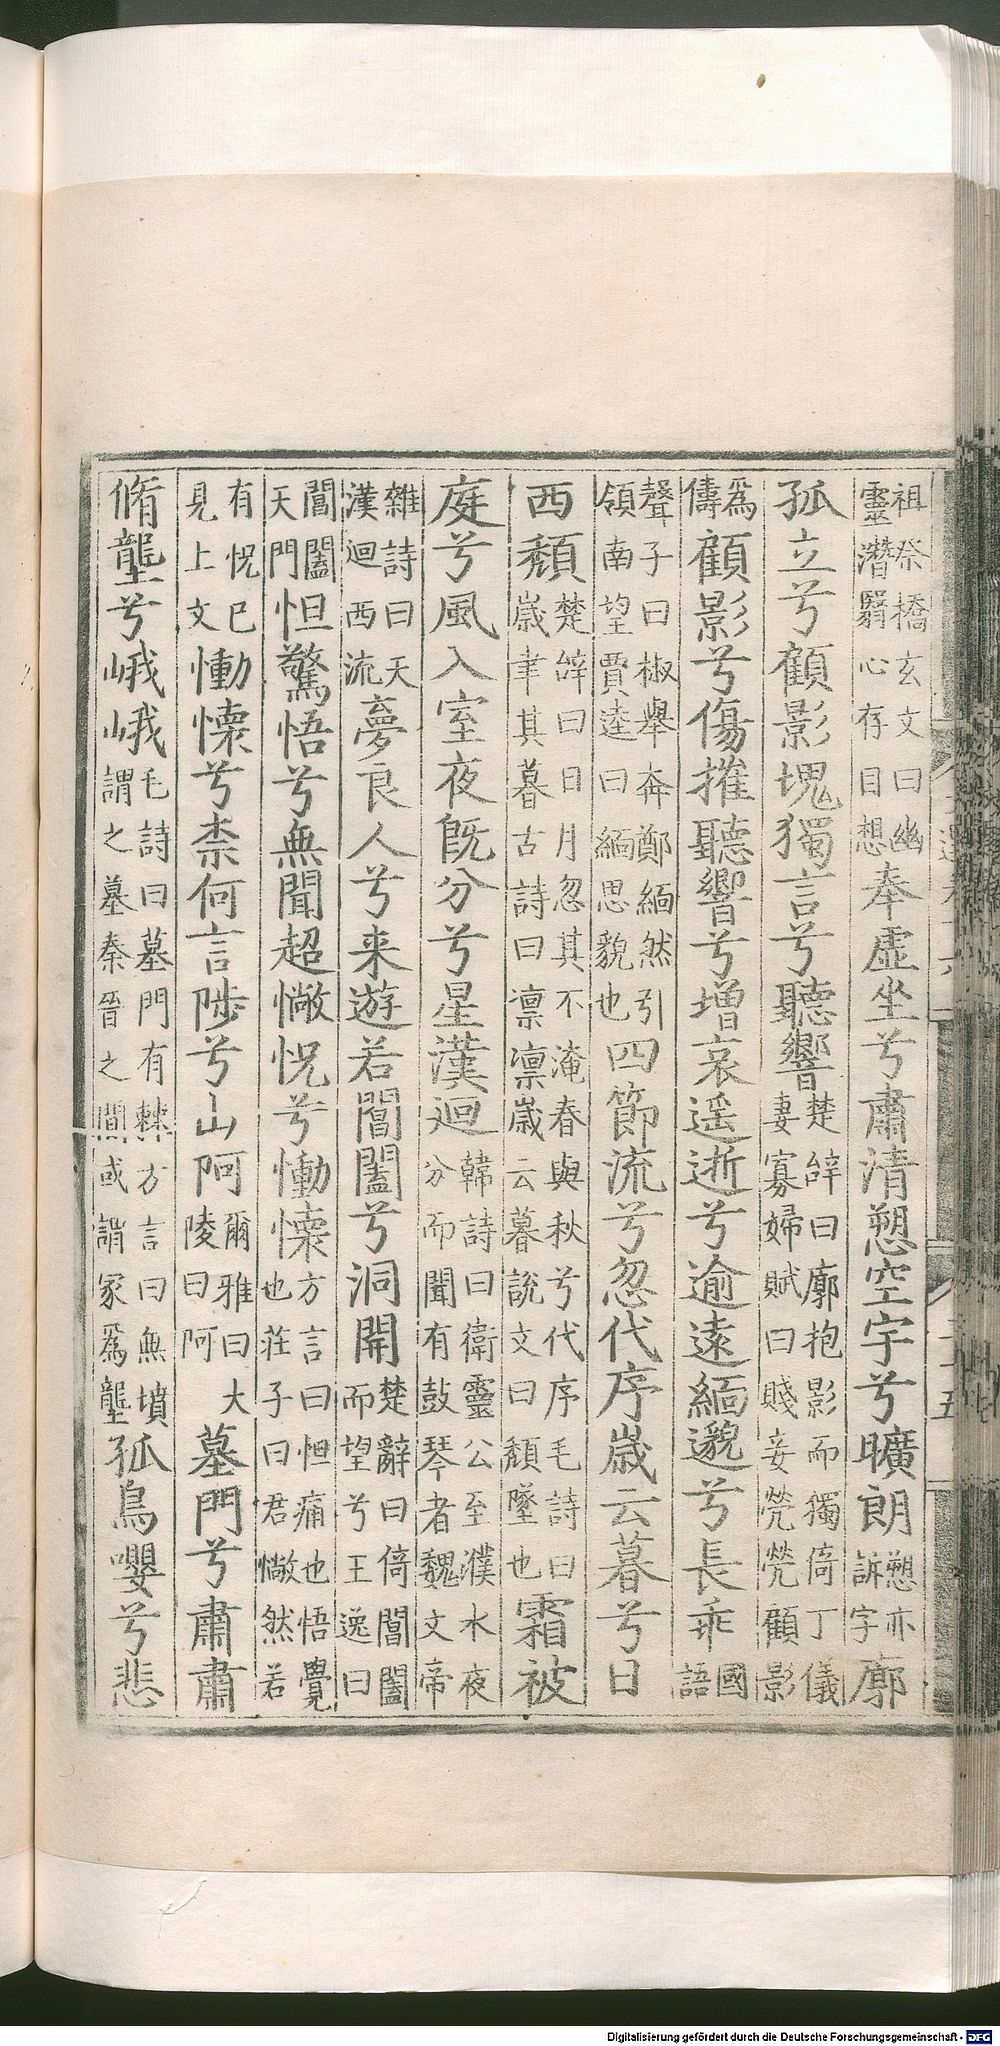 祖祭橋玄文曰幽靈潛翳心存目想奉虛坐兮肅清愬空宇兮曠朗愬亦訴字廓
孤立兮顧影塊獨言兮聽響楚辞曰廓抱影而獨倚丁儀妻寡婦賦曰賤妾煢煢顧影
爲儔顧影兮傷摧聽響兮增哀遥逝兮逾遠緬邈兮長乖國語
聲子曰椒舉奔鄭緬然引領南望賈逵曰緬思貌也四節流兮忽代序歲云暮兮日
西頹楚辞曰日月忽其不淹春與秋兮代序毛詩曰歲聿其暮古詩曰凛凛歲云暮說文曰頹墜也霜被
庭兮風入室夜既分兮星漢迴韓詩曰衛靈公至濮水夜分而聞有鼓琴者魏文帝
雜詩曰天漢迴西流夢良人兮来遊若閶闔兮洞開楚辭曰倚閶闔而望兮王逸曰
閶闔天門怛驚悟兮無聞超惝怳兮慟懷方言曰怛痛也悟覺也莊子曰君惝然若
有怳已見上文慟懷兮柰何言陟兮山阿爾雅曰大陵曰阿墓門兮肅肅
脩壟兮峨峨毛詩曰墓門有棘方言曰無墳謂之墓秦晉之間或謂冢爲壟孤鳥嚶兮悲
Digitalisierung gefördert durch die Deutsche Forschungsgemeinschaft - DFG